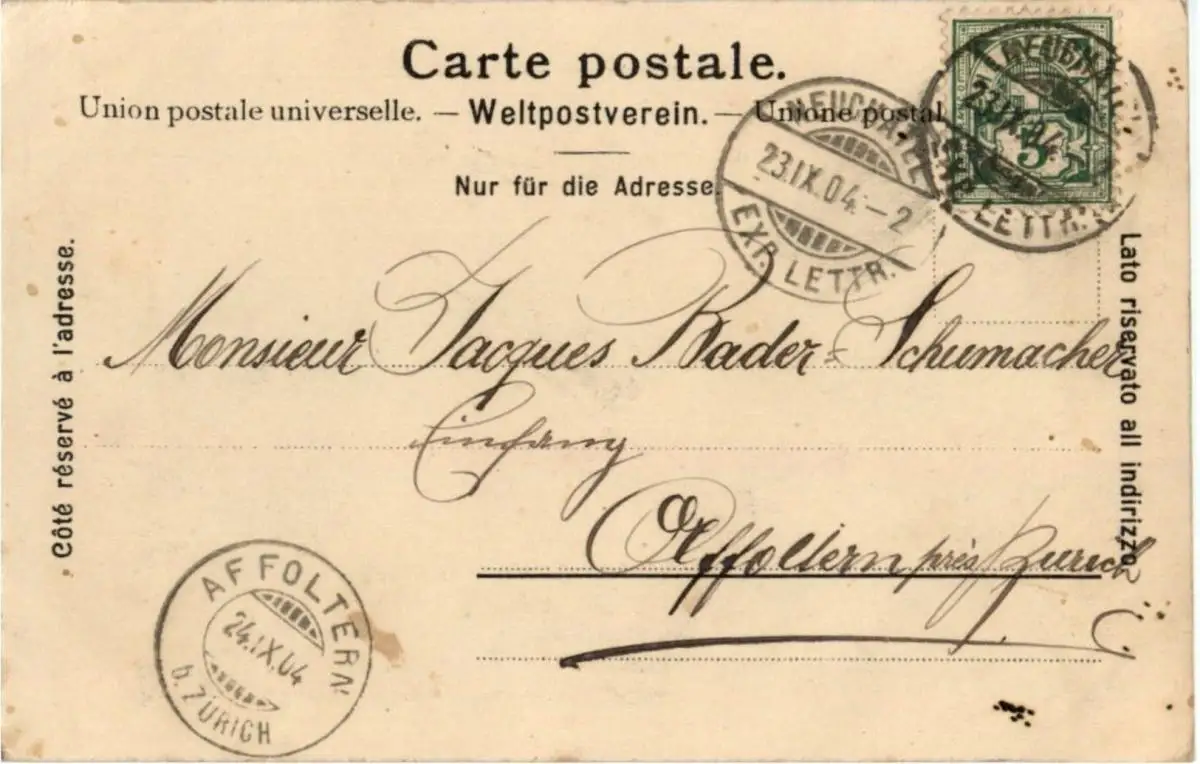 Carte postale.
Union postale universelle. — Weltpostverein. — Unione postal
Nur für die Adresse.
NEUCHATEL
23.IX.04.–2
EXP. LETTR.
NEUCHATEL
23.IX.04.
EXP. LETTR.
5
Côté réservé à l'adresse.
Lato riservato all indirizzo.
Monsieur Jacques Bader-Schumacher
Einfang
Affoltern près Zurich
AFFOLTERN
24.IX.04
b. ZÜRICH